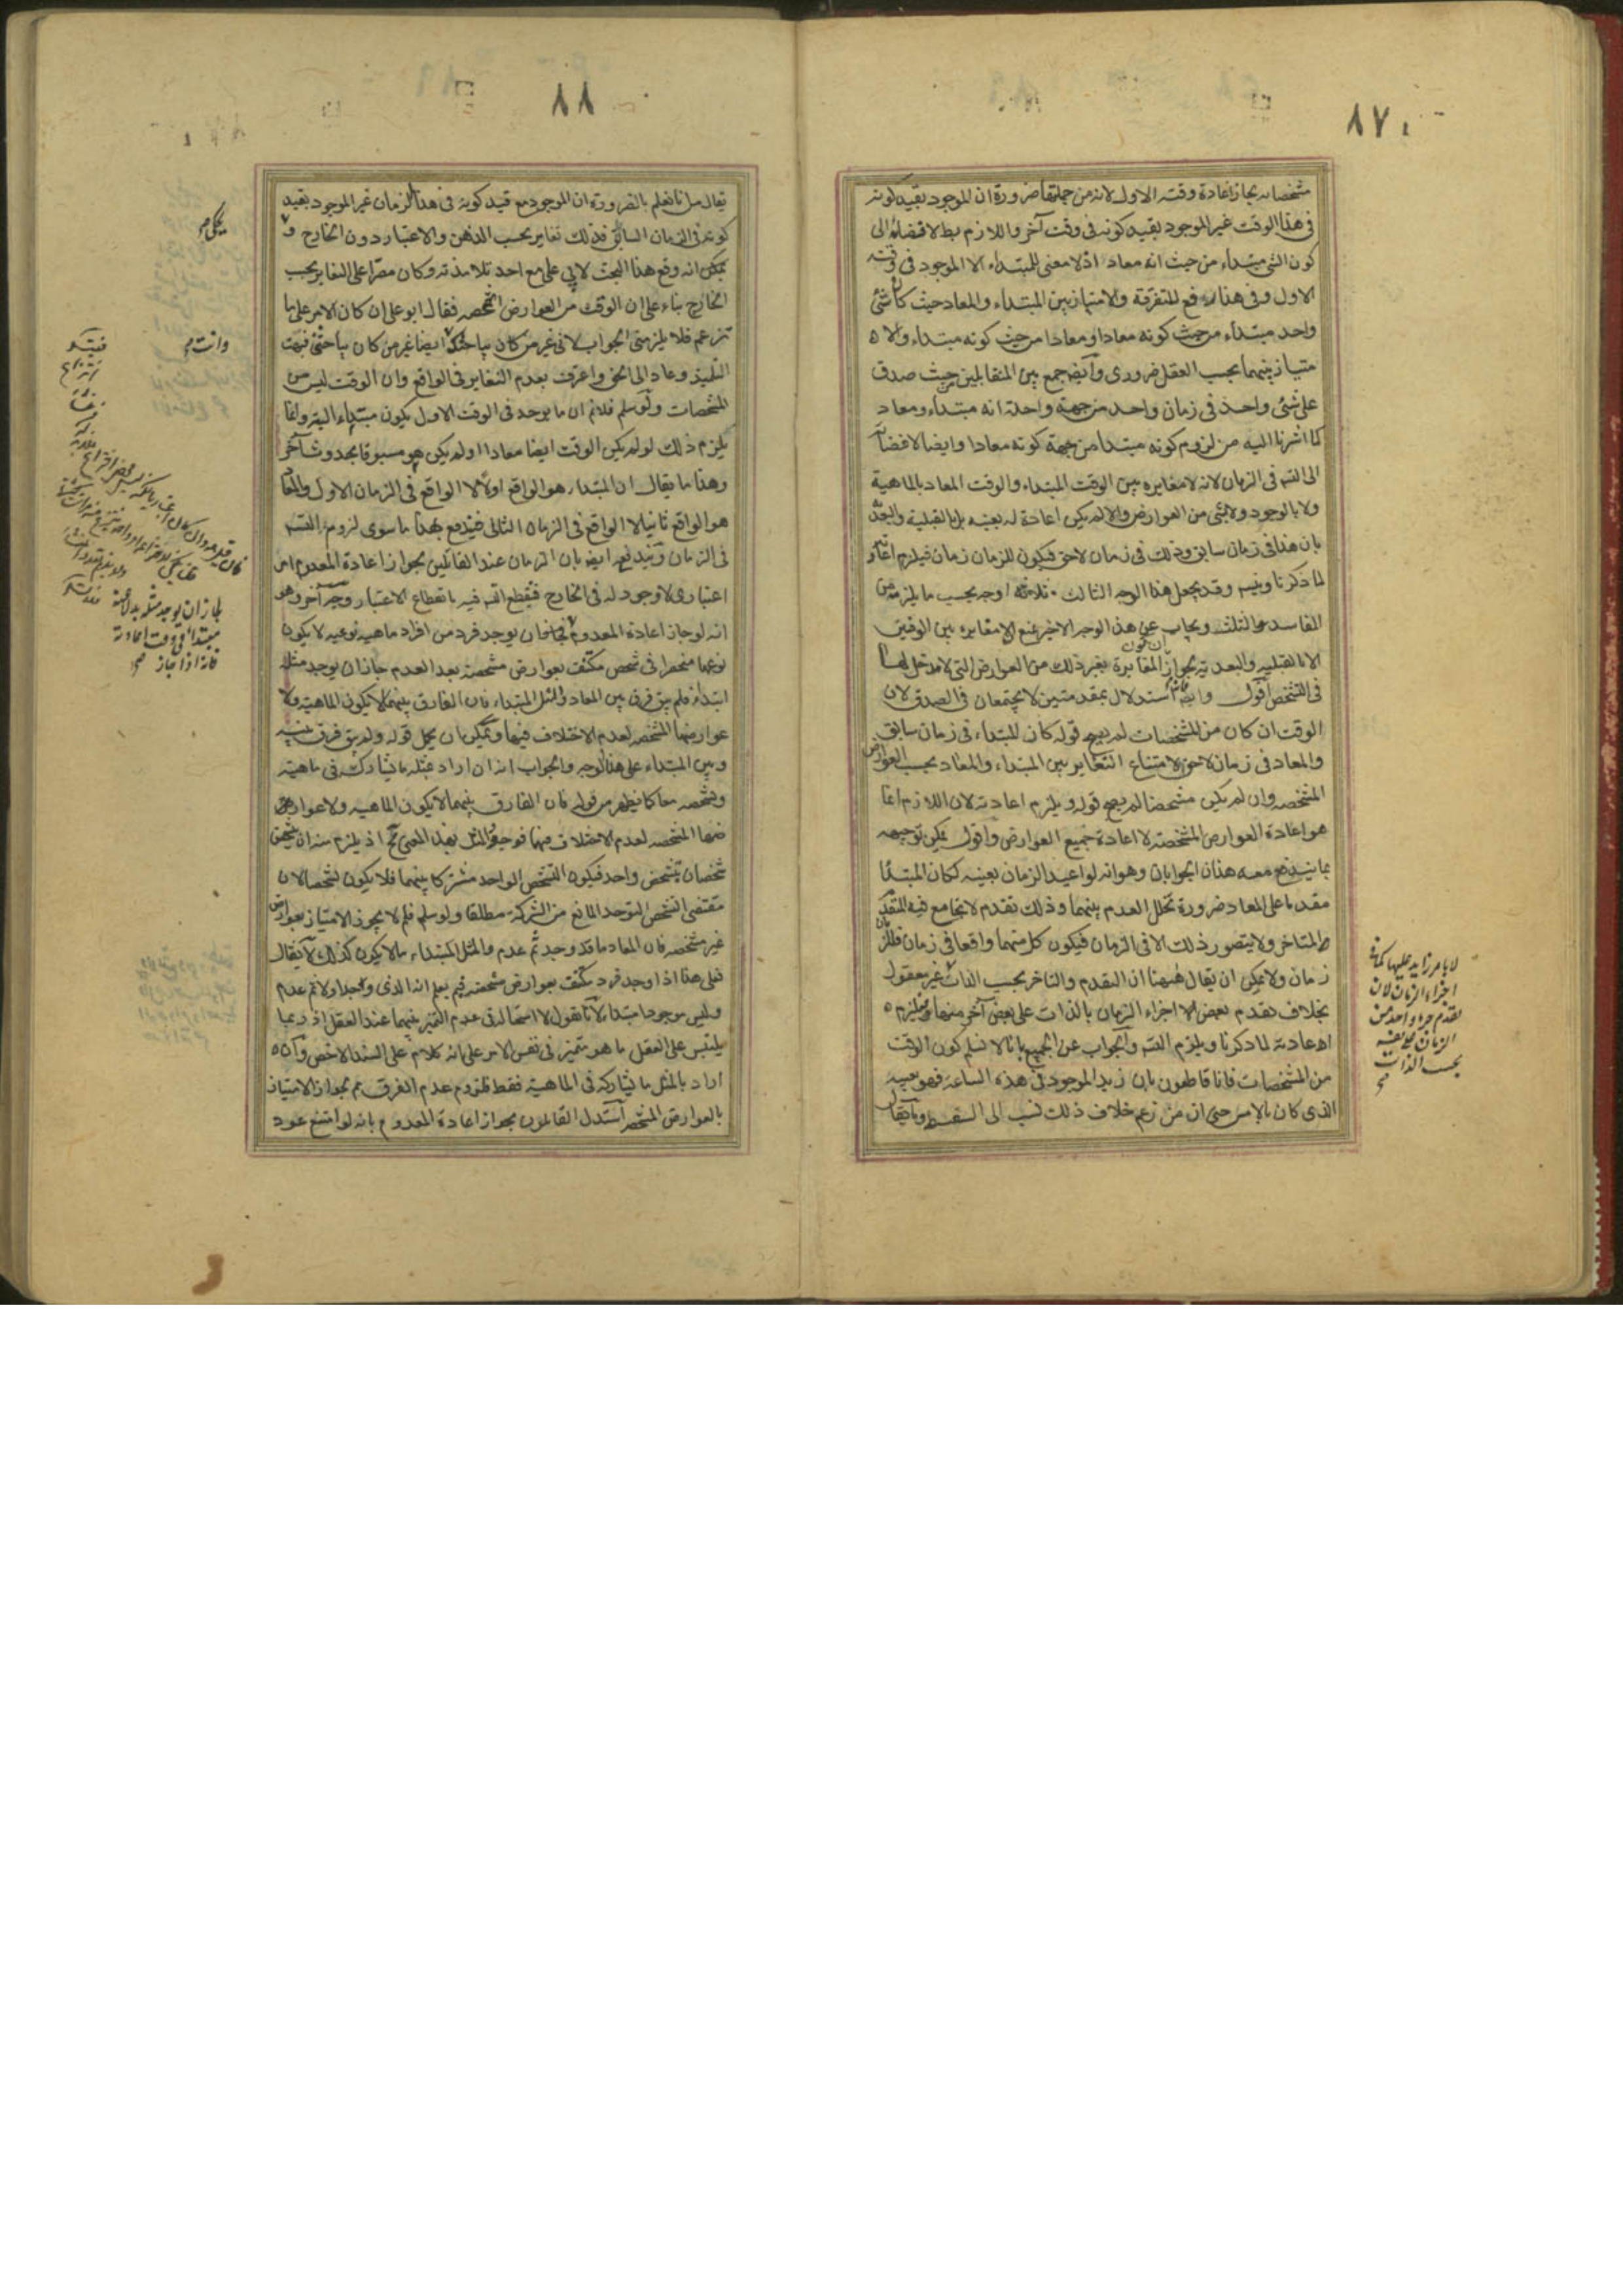 ٨٧
مشخصاته لجاز اعادة وقته الاول لانه من جملتها ضرورة ان الموجود بقيد كونه
فى هذا الوقت غير الموجود بقيد كونه فى وقت آخر واللازم بط لافضائه الى
كون الشئ مبتداء من حيث انه معاد اذ لا معنى للمبتداء الا الموجود فى وقته
الاول وفى هذا رفع للتفرقة والامتياز بين المبتداء والمعاد حيث كان شئ
واحد مبتداء من حيث كونه معادا ومعادا من حيث كونه مبتداء والا
متياز بينهما بحسب العقل ضرورى وايضا جمع بين المتقابلين حيث صدق
على شئ واحد فى زمان واحد من جهة واحدة انه مبتداء ومعاد
كما اشرنا اليه من لزوم كونه مبتدا من جهة كونه معادا وايضا لافضائه
الى التسه فى الزمان لانه لا مغايرة بين الوقت المبتداء والوقت المعاد بالماهية
ولا بالوجود ولا بشئ من العوارض والا لم يكن اعادة له بعينه بل بالقبلية والبعديه
بان هذا فى زمان سابق وذلك فى زمان لاحق فيكون للزمان زمان فيلزم اعادته
لما ذكرنا ويتسه وقد يجعل هذا الوجه الثالث ثلاثة اوجه بحسب ما يلزمه من
المفاسد الثلث ويجاب عن هذا الوجه الاخير بمنع لا مغايرة بين الوقتين
الا بالقبليه والبعديه لجواز ان تكون المغايرة بغير ذلك من العوارض التى لا مدخل لها
فى التشخص اقول وايضا استدلال بمقدمتين لا يجتمعان فى الصدق لان
الوقت ان كان من المشخصات لم يصح قوله كان المبتداء فى زمان سابق
والمعاد فى زمان لاحق لامتناع التغاير بين المبتداء والمعاد بحسب العوارض
المشخصه وان لم يكن مشخصا لم يصح قوله ويلزم اعادته لان اللازم انما
هو اعادة العوارض المشخصة لا اعادة جميع العوارض واقول يمكن توجيهه
بما يندفع معه هذان الجوابان وهو انه لو اعيد الزمان بعينه لكان المبتدأ
مقدما على المعاد ضرورة تخلل العدم بينهما وذلك تقدم لا يجامع فيه المتقدم
المتاخر ولا يتصور ذلك الا فى الزمان فيكون كل منهما واقعا فى زمان فللزمان
زمان ولا يمكن ان يقال ههنا ان التقدم والتاخر بحسب الذات غير معقول
بخلاف تقدم بعض اجزاء الزمان بالذات على بعض آخر منها ويلزم
اعادته لما ذكرنا ويلزم التسه والجواب عن الجميع بانا لا نسلم كون الوقت
من المشخصات فانا قاطعون بان زيد الموجود فى هذه الساعة فهو بعينه
الذى كان بالامس حتى ان من زعم خلاف ذلك نسب الى السفسطه وما يقال
لا بامر زايد عليها كما فى
اجزاء الزمان لان
تقدم جزء واحد من
الزمان على بعضه
بحسب الذات
صح
٨٨
يقال من انا نعلم بالضرورة ان الموجود مع قيد كونه فى هذا الزمان غير الموجود بقيد
كونه فى الزمان السابق فذلك تغاير بحسب الذهن والاعتبار دون الخارج و
يحكى انه وقع هذا البحث لابى على مع احد تلامذته وكان مصرا على التغاير بحسب
الخارج بناء على ان الوقت من العوارض المشخصه فقال ابو على ان كان الامر على ما
تزعم فلا يلزمنى الجواب لانى غير من كان يباحثك ايضا غير من كان يباحثنى فبهت
التلميذ وعاد الى الحق واعترف بعدم التغاير فى الواقع وان الوقت ليس من
المشخصات ولو سلم فلا نم ان ما يوجد فى الوقت الاول يكون مبتداء البته وانما
يلزم ذلك لو لم يكن الوقت ايضا معادا او لم يكن هو مسبوقا بحدوث آخر
وهذا ما يقال ان المبتداء هو الواقع اولا لا الواقع فى الزمان الاول والمعاد
هو الواقع ثانيا لا الواقع فى الزمان الثانى فيندفع بهذا ما سوى لزوم التسه
فى الزمان ويندفع ايضا بان الزمان عند القائلين بجواز اعادة المعدوم امر
اعتبارى لا وجود له فى الخارج فيقطع التسه فيه بانقطاع الاعتبار وجه آخر وهو
انه لو جاز اعادة المعدوم لجاز ان يوجد فرد من افراد ماهيه نوعيه لا يكون
نوعها منحصرا فى شخص مكتنف بعوارض مشخصة بعد العدم جاز ان يوجد مثله
ابتداء فلم يبق فرق بين المعاد والمثل المبتداء فان الفارق بينهما لا يكون الماهية ولا
عوارضها المشخصه لعدم الاختلاف فيها ويمكن ان يحمل قوله ولم يبق فرق بينه
وبين المبتداء على هذا الوجه والجواب انه ان اراد بمثله ما يشاركه فى ماهيته
وتشخصه معا كما يظهر من قوله فان الفارق بينهما لا يكون الماهيه ولا عوار
ضها المشخصه لعدم الاختلاف فيها فوجود المثل بهذا المعنى مح اذ يلزم منه ان يتشخص
شخصان بتشخص واحد فيكون التشخص الواحد مشتركا بينهما فلا يكون تشخصا لان
مقتضى التشخص التوحد المانع من الشركة مطلقا ولو سلم فلم لا يجوز الامتياز بعوارض
غير مشخصه فان المعاد ما قد وجد ثم عدم والمثل المبتداء ما لا يكون كذلك لا يقال
فعلى هذا اذا وجد فرد مكتنف بعوارض مشخصه فبم يعلم انه الذى وجد اولا ثم عدم
وليس موجودا مبتداء لانا نقول لا استحالة فى عدم التميز بينهما عند العقل اذ ربما
يلتبس على العقل ما هو متميز فى نفس الامر على انه كلام على السند الاخص وان
اراد بالمثل ما يشاركه فى الماهية فقط فلزوم عدم الفرق مم لجواز الامتياز
بالعوارض المشخصه استدل القائلون بجواز اعادة المعدوم بانه لو امتنع عود
يحكى صح
وانت صح
لجاز ان يوجد مثله بدلا عنه
مبتداء فى وقت اعادته
فانه اذا جاز صح